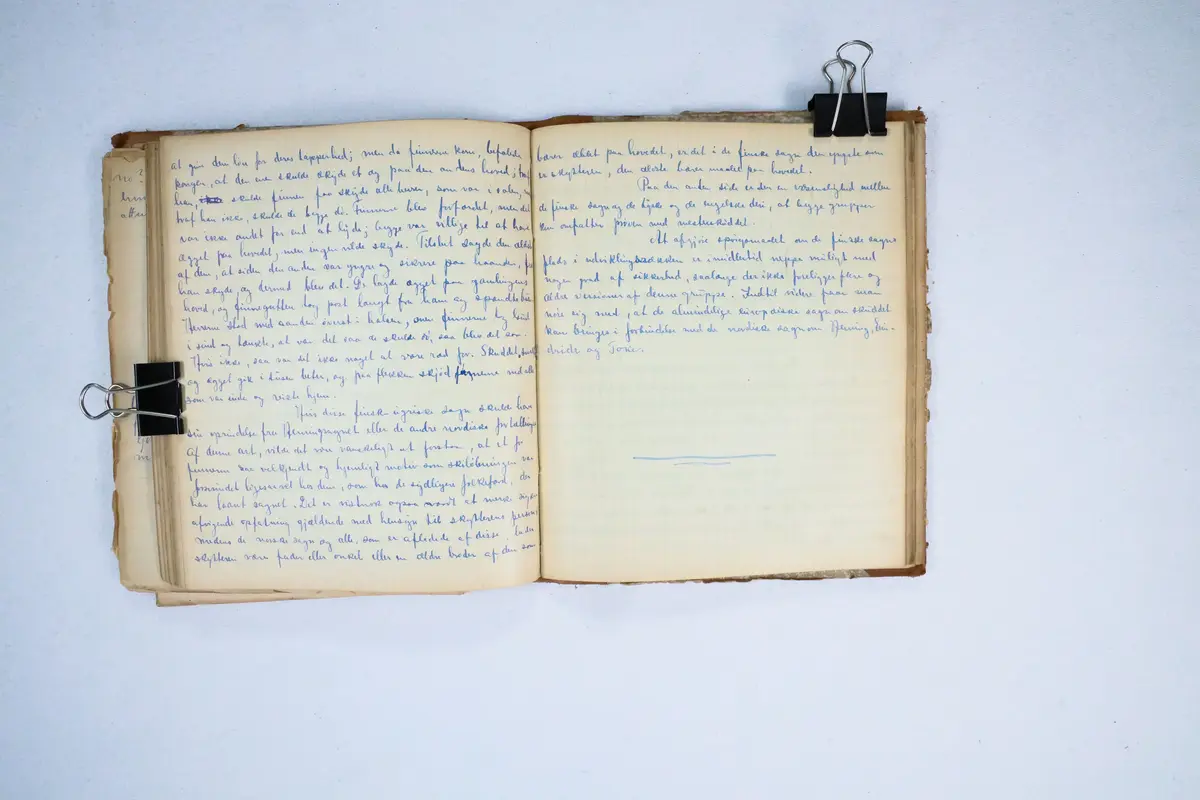 at give dem løn for deres tapperhed; men da finnerne kom, befalede
kongen, at den ene skulde skyde et æg paa den andens hoved; traf
han, skulde finnen faa skyde alle herrer, som var i salen, men
traf han ikke, skulde de begge dø. Finnerne blev forfærdet, men det
var ikke andet for end at lyde; begge var villige til at have
ægget paa hovedet, men ingen vilde skyde. Tilslut sagde den ældste
af dem, at siden den anden var yngre og sikrere paa haanden, fik
han skyde, og dermed blev det. De lagde ægget paa gamlingens
hoved, og finnegutten tog post langt fra ham og spændte buen
Herrerne stod med aanden øverst i halsen, men finnerne tog
i sind og tænkte, at var det saa de skulde dø, saa blev det saa.
Hvis ikke, saa var det ikke noget at være rad for. Skuddet smalt
og ægget gik i tusen beter, og paa flekken skjød finnerne ned alle
som var inde og reiste hjem.
Hvis disse finsk-ugriske sagn skulde have
sin oprindelse fra Hemingsagnet eller de andre nordiske fortællinger
af denne art, vilde det være vanskeligt at forstaa, at et for
finnerne saa velkjendt og hjemligt motiv som skiløbningen var
forsvundet ligesaavel hos dem, som hos de sydligere folkefærd, der
har laant sagnet. Det er vistnok ogsaa værdt at merke
afvigende opfatning gjældende med hensyn til skytterens person
medens de norske sagn og alle, som er afledede af disse, lader
skytteren være fader eller onkel eller en ældre broder af den som
bærer æblet paa hovedet, er det i de finske sagn den yngste som
er skytteren, den ældste bærer maalet paa hovedet.
Paa den anden side er der en overensstemmelse mellem
de finske sagn og de tyske og de engelske deri, at begge grupper
kun omfatter prøven med mesterskuddet.
At afgjøre spørgsmaalet om de finske sagns
plads i udviklingsrækken er imidlertid neppe muligt med
nogen grad af sikkerhed, saalænge der ikke foreligger flere og
ældre versioner af denne gruppe. Indtil videre faar man
nøie sig med, at de almindelige europæiske sagn om skuddet
kan bringes i forbindelse med de nordiske sagn om Heming, Ein-
dride og Toke.